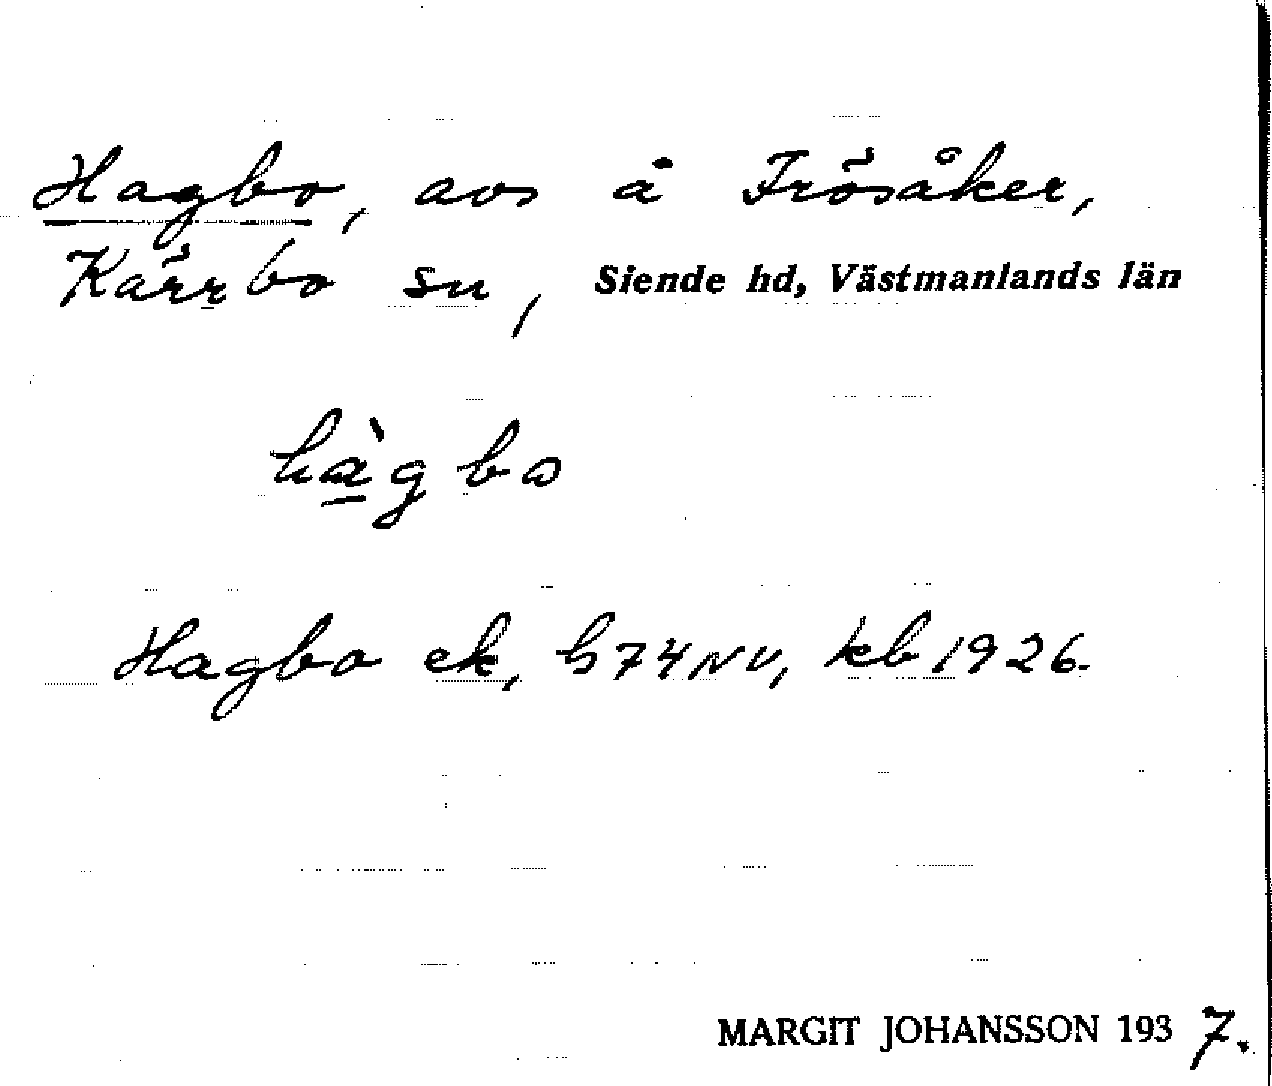 Hagbo, avs å Frösåker,
Kärrbo sn, Siende hd, Västmanlands län
hàgbo
Hagbo ek, h74NV, kb 1926.
MARGIT JOHANSSON 1937.